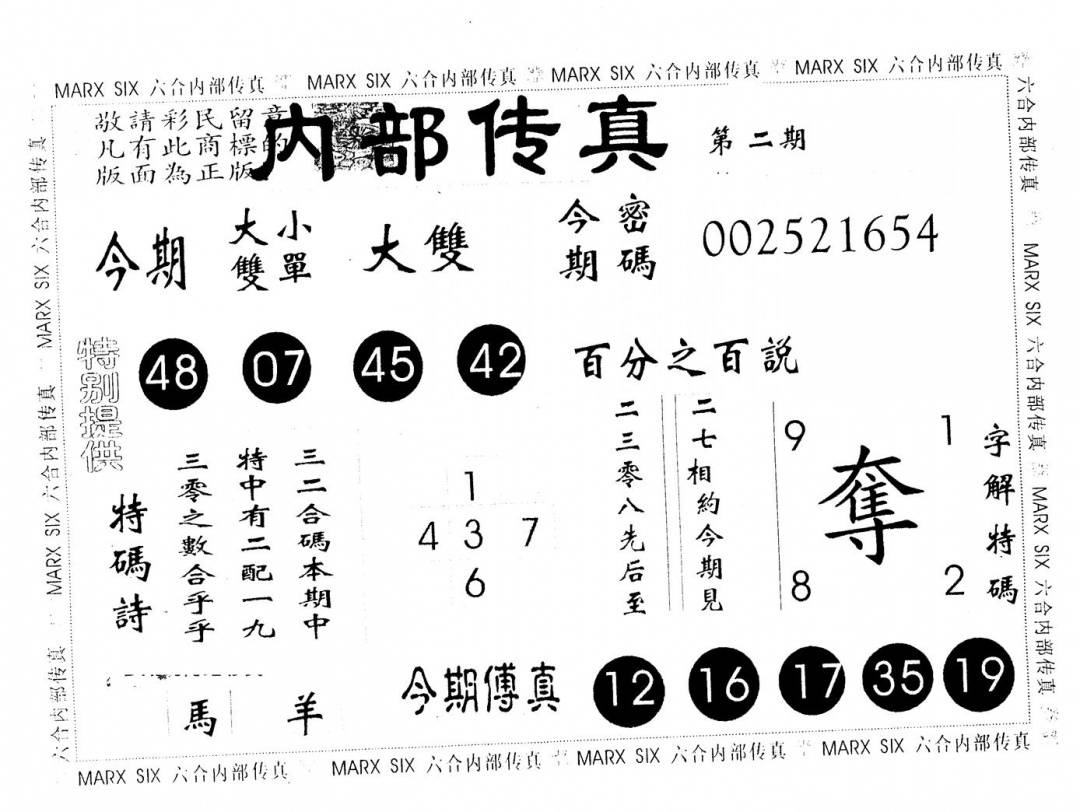 MARX SIX 六合内部传真 MARX SIX 六合内部传真 MARX SIX 六合内部传真 MARX SIX 六合内部传真
敬請彩民留意
凡有此商標的
版面為正版
内部传真
第二期
今期
大雙
小單
大雙
今期
密碼
002521654
特别提供
48 07 45 42
百分之百説
特碼詩
三零之數合乎乎
特中有二配一九
三二合碼本期中
1
4 3 7
6
二三零八先后至
二七相約今期見
9 1
奪
8 2
字解特碼
馬 羊
今期傅真
12 16 17 35 19
六合内部传真 MARX SIX 六合内部传真 MARX SIX 六合内部传真 MARX SIX 六合内部传真
六合内部传真 MARX SIX 六合内部传真 MARX SIX 六合内部传真 MARX SIX 六合内部传真
MARX SIX 六合内部传真 MARX SIX 六合内部传真 MARX SIX 六合内部传真 MARX SIX 六合内部传真